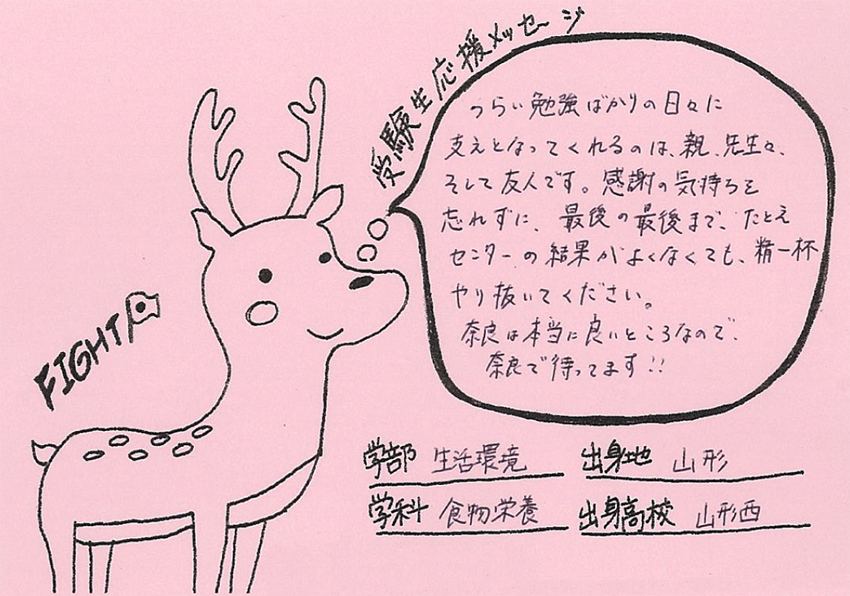 受験生応援メッセージ
つらい勉強ばかりの日々に
支えとなってくれるのは、親、先生々、
そして友人です。感謝の気持ちを
忘れずに、最後の最後まで、たとえ
センターの結果がよくなくても、精一杯
やり抜いてください。
奈良は本当に良いところなので、
奈良で待ってます!!
FIGHT
学部 生活環境
出身地 山形
学科 食物栄養
出身高校 山形西